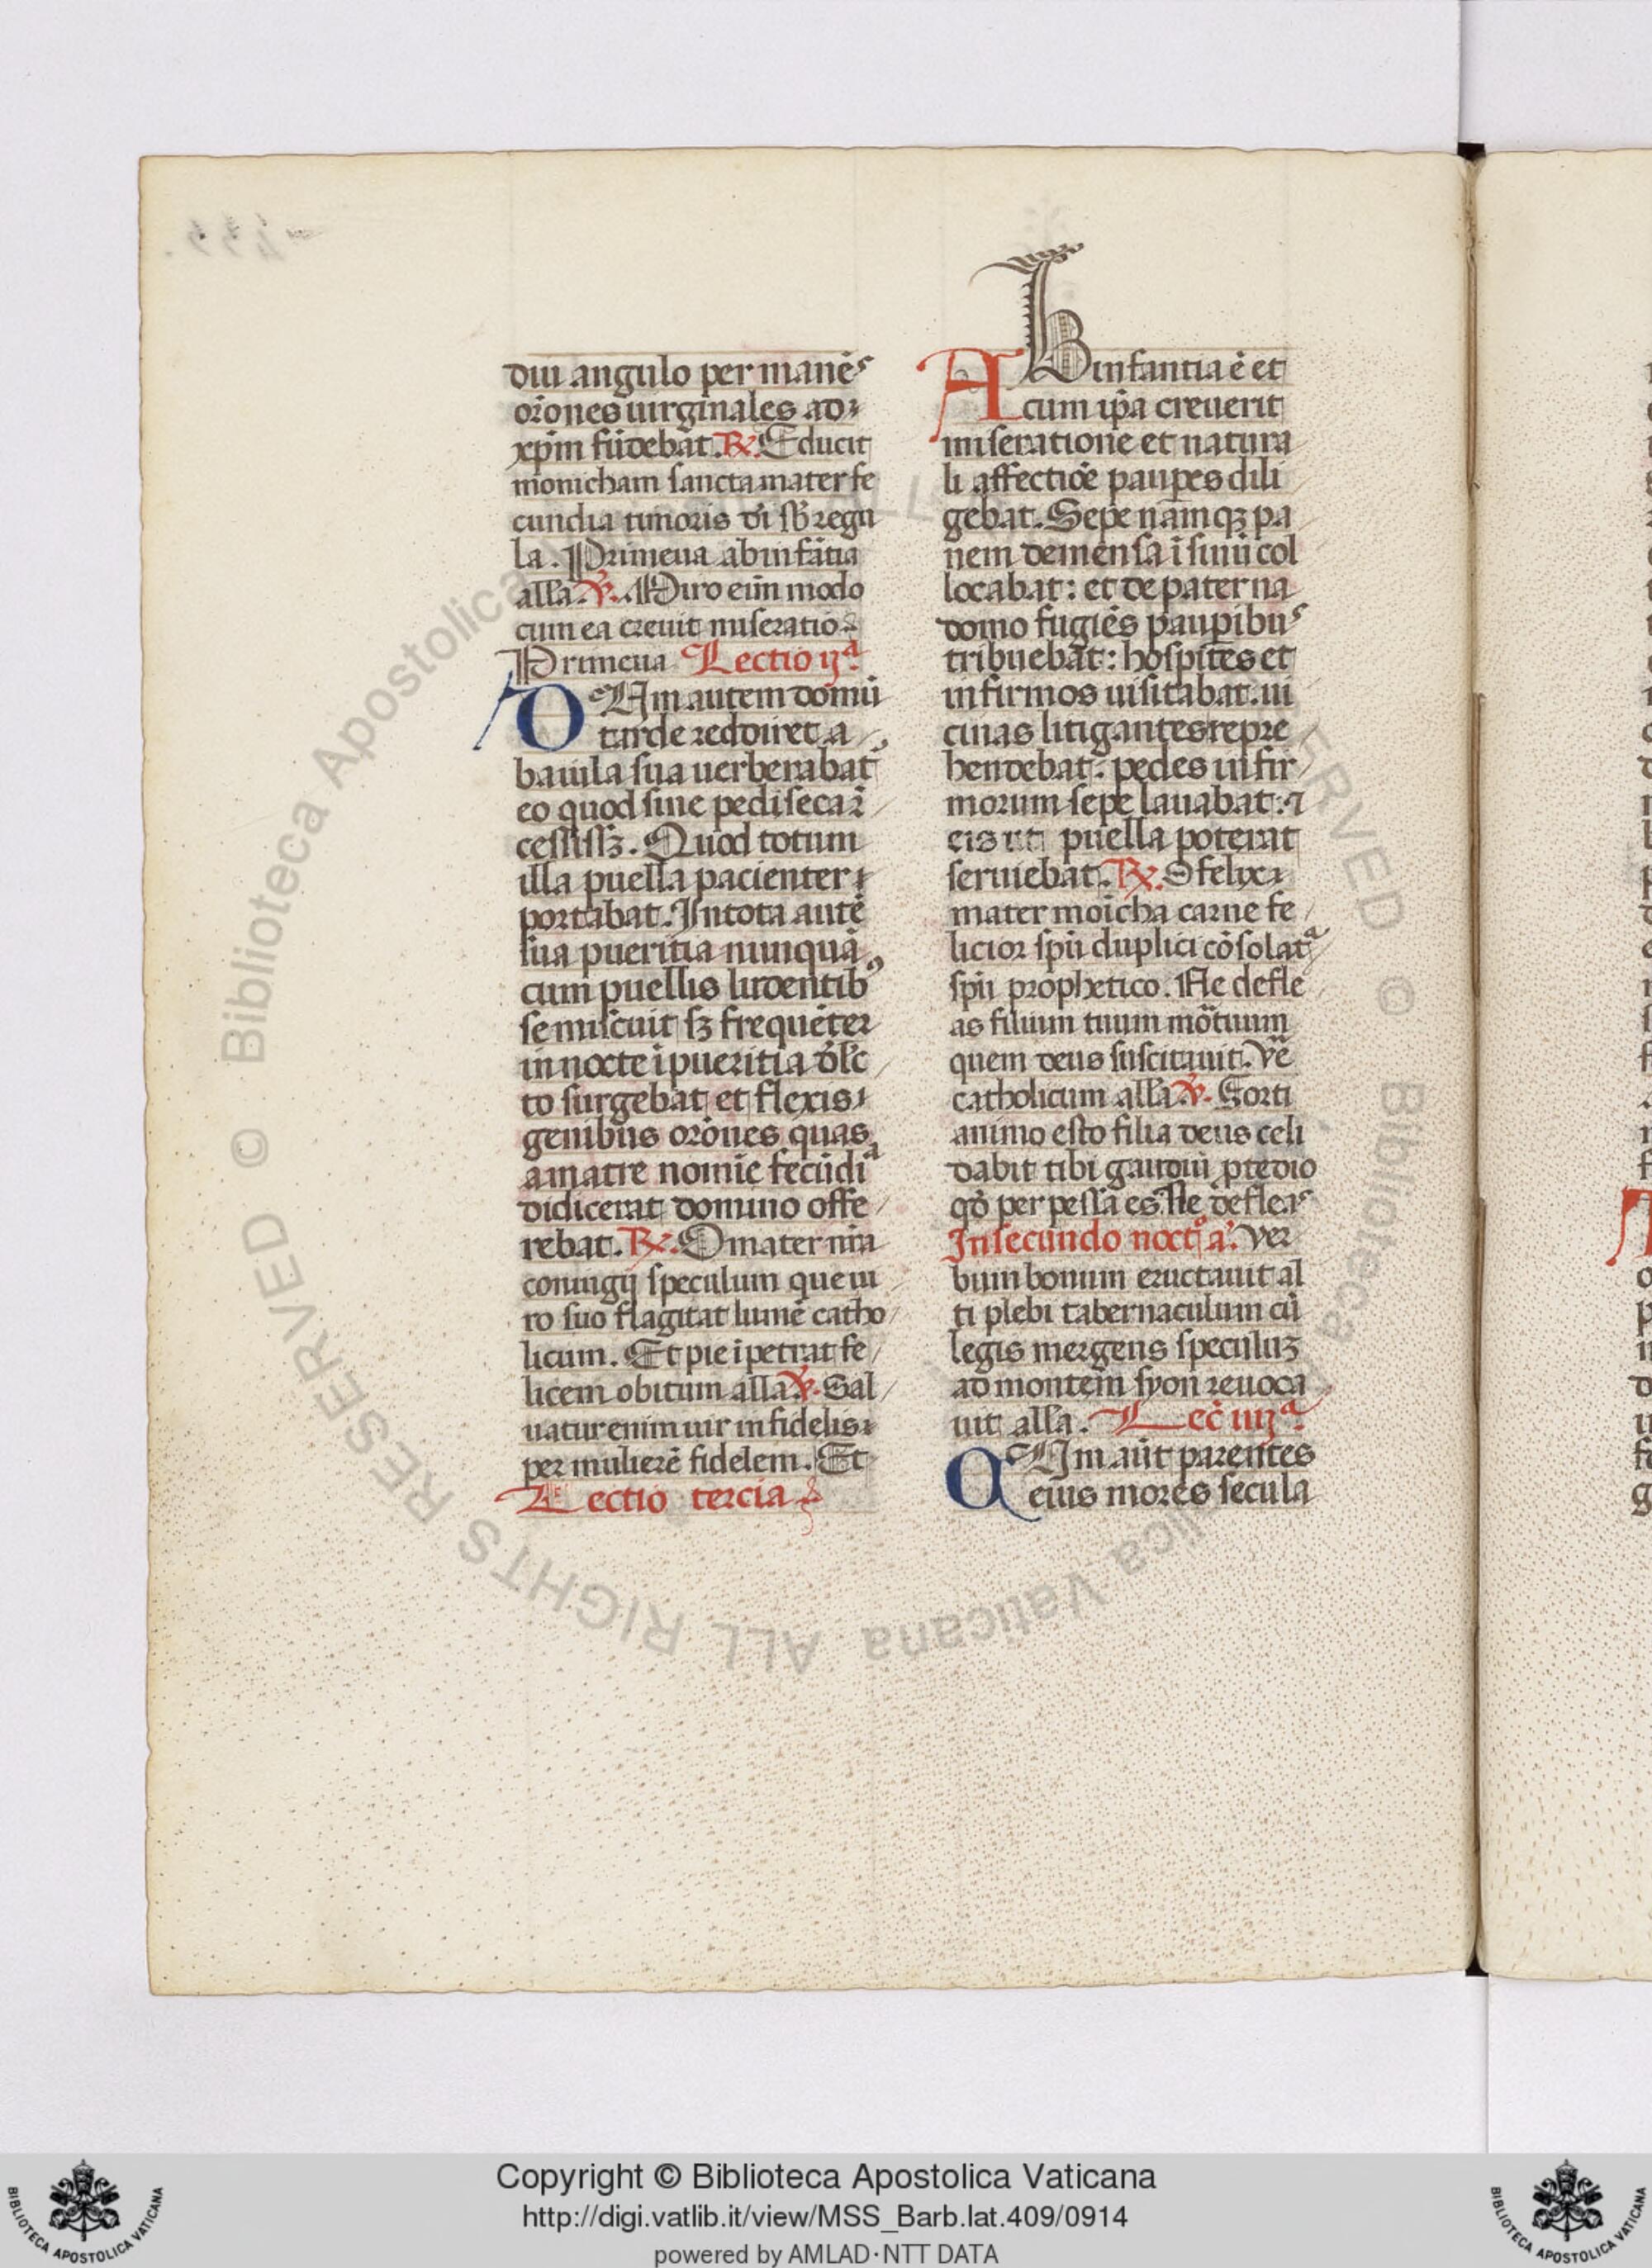 diu angulo per manēs
or̄ones uirginales ad
xp̄m fūdebāt. ℟. Educit
monicham sancta mater fe
cundia timoris dī sb̄ regu
la. Primeua ab infātia
all̄a. ℣. Miro eīm modo
cum ea creuit miseratio.
Primeua Lectio ijᵃ.
DUm autem domū
tarde rediret a
baiula sua uerberabat᷑
eo quod sine pediseca ī
cessissꝫ. Quod totum
illa puella pacienter
portabat. In tota autē
sua pueritia nunquā
cum puellis ludentibꝰ
se miscuit sꝫ frequēter
in nocte ī pueritia de lc̄
to surgebat et flexis
genibus or̄ones quas
a matre nomīe fecūdiᵃ
didicerat domino offe
rebat. ℟. O mater nr̄a
coniugij speculum que ui
ro suo flagitat lumē catho
licum. Et pie īpetrat fe
licem obitum all̄a. ℣. Sal
uatur enim uir infidelis
per mulierē fidelem. Et
Lectio tercia
AB infantia ē et
cum ip̄a creuerit
miseratione et natura
li affectiōe paup̄es dili
gebat. Sepe nāmqꝫ pa
nem de mensa ī sinū col
locabat: et de paterna
domo fugiēs paup̄ibus
tribuebāt: hospites et
infirmos uisitabat. ui
cinas litigantes repre
hendebat: pedes infir
morum sepe lauabat: ⁊
eis ut puella poterat
seruiebat. ℟. O felyx
mater moīcha carne fe
licior sp̄u duplici cōsolatᵃ
sp̄u prophetico. Ne defle
as filium tuum mōtuum
quem deus suscitauit. Vē
catholicum all̄a ℣. Forti
animo esto filia deus celi
dabit tibi gaudiū p̄ tedio
qd̄ perpessa es. Ne defleas
In secundo noct̊. aᵃ. Ver
bum bonum eructauit al
ti plebi tabernaculum cū
legis mergens speculuꝫ
ad montem syon reuoca
uit all̄a. Lec̄ iiijᵃ.
QUm aūt parentes
eius mores secula
Copyright © Biblioteca Apostolica Vaticana
http://digi.vatlib.it/view/MSS_Barb.lat.409/0914
powered by AMLAD·NTT DATA